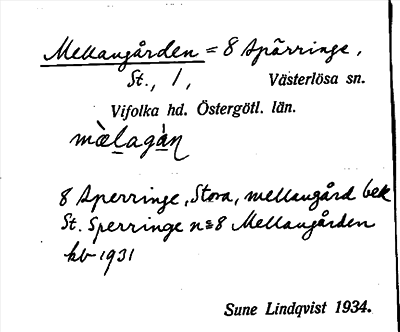 Mellangården = 8 Spärringe,
St., 1, Västerlösa sn.
Vifolka hd. Östergötl. län.
mὰlagàn
8 Sperringe, Stora, mellangård bek
St. Sperringe n=8 Mellangården
kb 1931
Sune Lindqvist 1934.